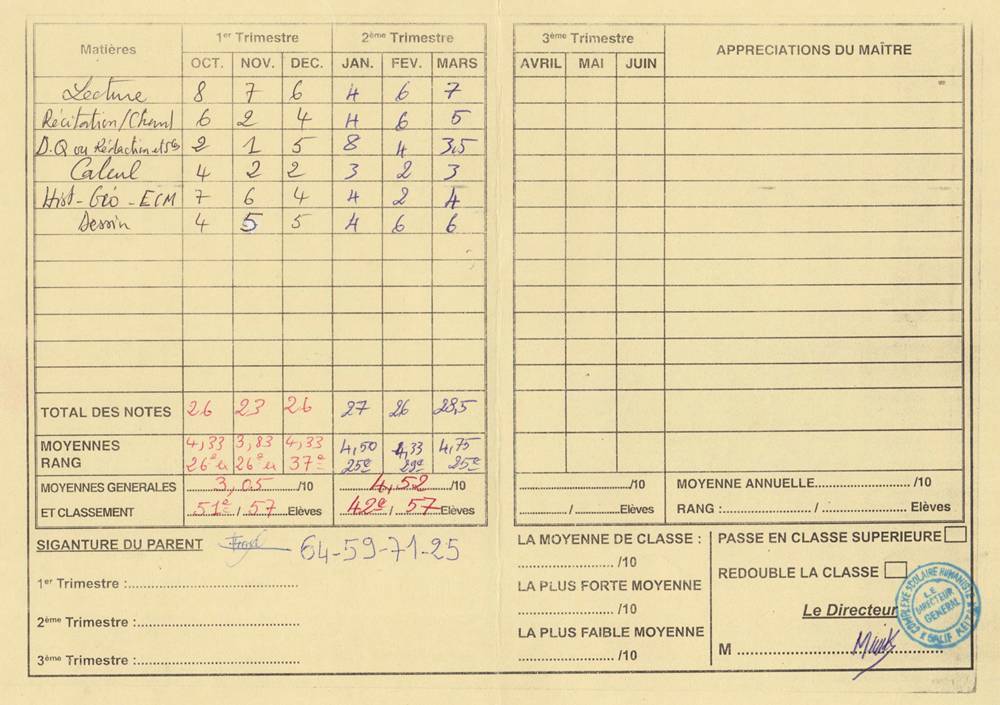 Matières 1er Trimestre 2ème Trimestre
OCT. NOV. DEC. JAN. FEV. MARS
Lecture 8 7 6 4 6 7
Récitation/Chant 6 2 4 4 6 5
D.Q ou Rédaction et 2 1 5 8 4 3,5
Calcul 4 2 2 3 2 3
Hist-Géo-ECM 7 6 4 4 2 4
Dessin 4 5 5 4 6 6
TOTAL DES NOTES 26 23 26 27 26 28,5
MOYENNES 4,33 3,83 4,33 4,50 4,33 4,75
RANG 26e ex 26e ex 37e 25e 29e 25e
MOYENNES GENERALES 3,05 /10 4,52 /10
ET CLASSEMENT 51e / 57 Elèves 42e / 57 Elèves
SIGANTURE DU PARENT 64-59-71-25
1er Trimestre :
2ème Trimestre :
3ème Trimestre :
3ème Trimestre APPRECIATIONS DU MAÎTRE
AVRIL MAI JUIN
/10 MOYENNE ANNUELLE /10
/ Elèves RANG : / Elèves
LA MOYENNE DE CLASSE :
/10
LA PLUS FORTE MOYENNE
/10
LA PLUS FAIBLE MOYENNE
/10
PASSE EN CLASSE SUPERIEURE
REDOUBLE LA CLASSE
Le Directeur
M
COMPLEXE SCOLAIRE HUMANISTE
LE
DIRECTEUR
GENERAL
SALIF KEITA